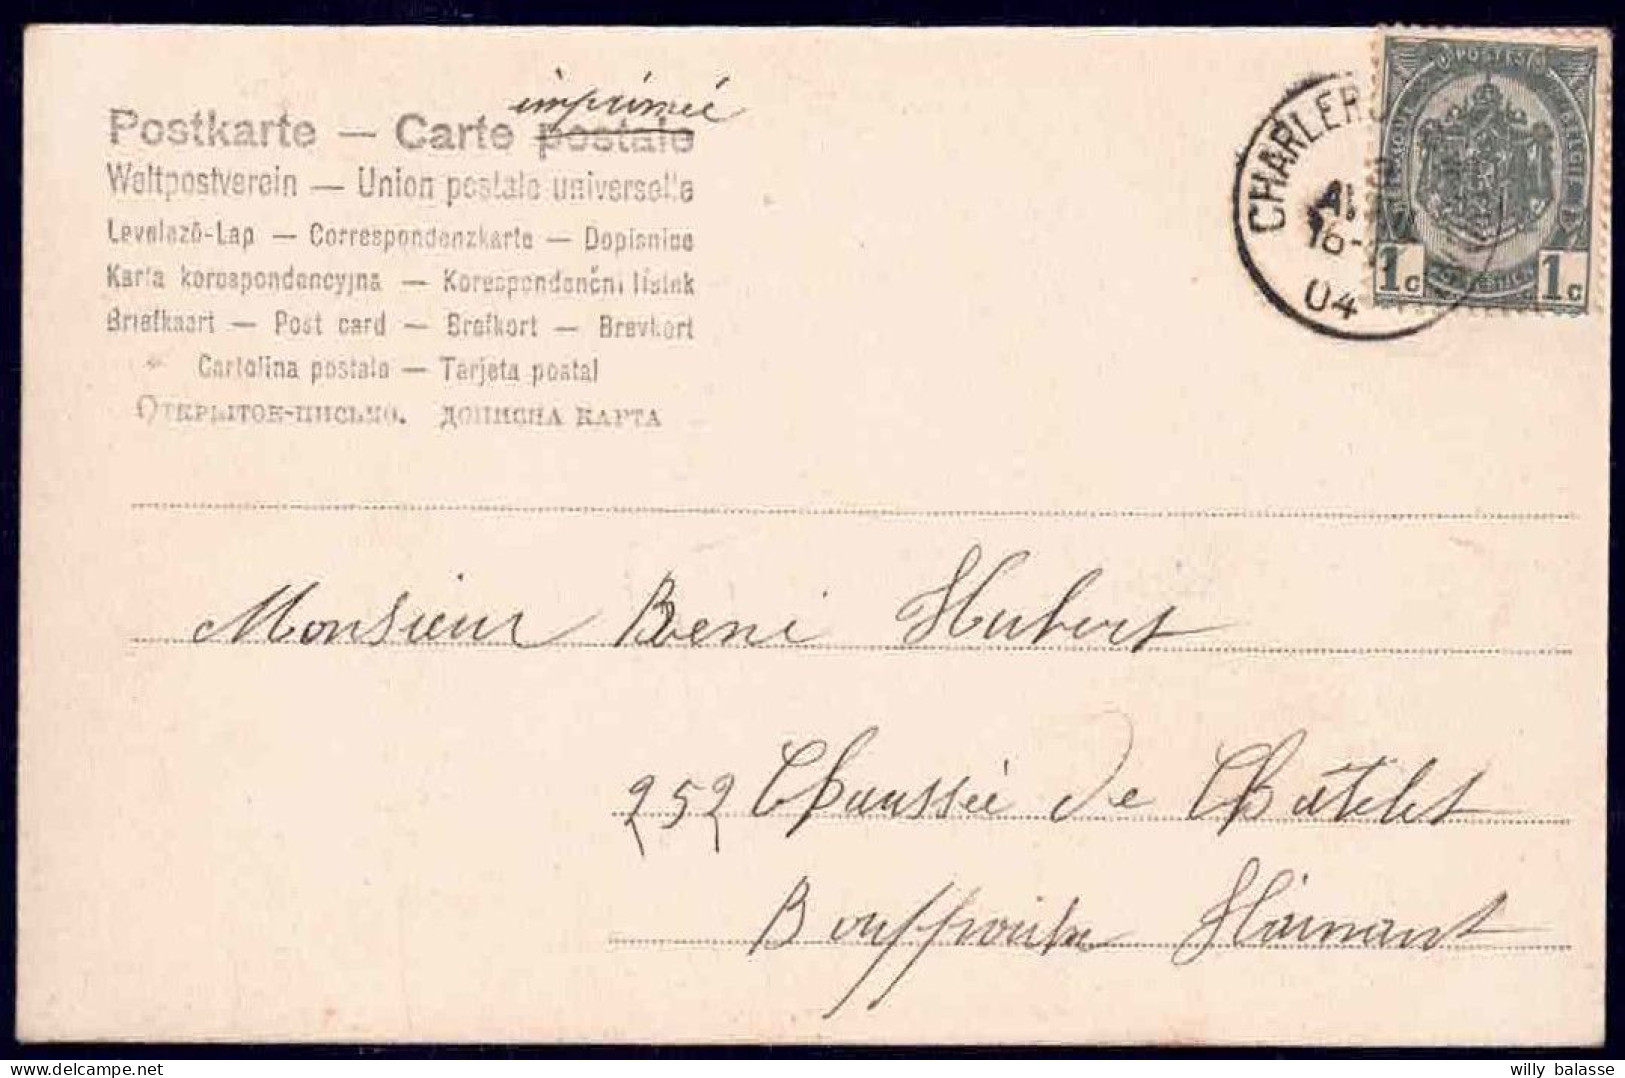 imprimée
Postkarte — Carte postale
Weltpostverein — Union postale universelle
Levelező-Lap — Correspondenzkarte — Dopisnice
Karta korespondencyjna — Korespondenční lístek
Briefkaart — Post card — Brefkort — Brevkort
Cartolina postale — Tarjeta postal
Открытое-письмо. дописна карта
CHARLERO
16-
04
POSTES
BELGIË
1c 1c
Monsieur René Hubert
252 Chaussée de Châtelet
Bouffioulx Hainaut
willy balasse